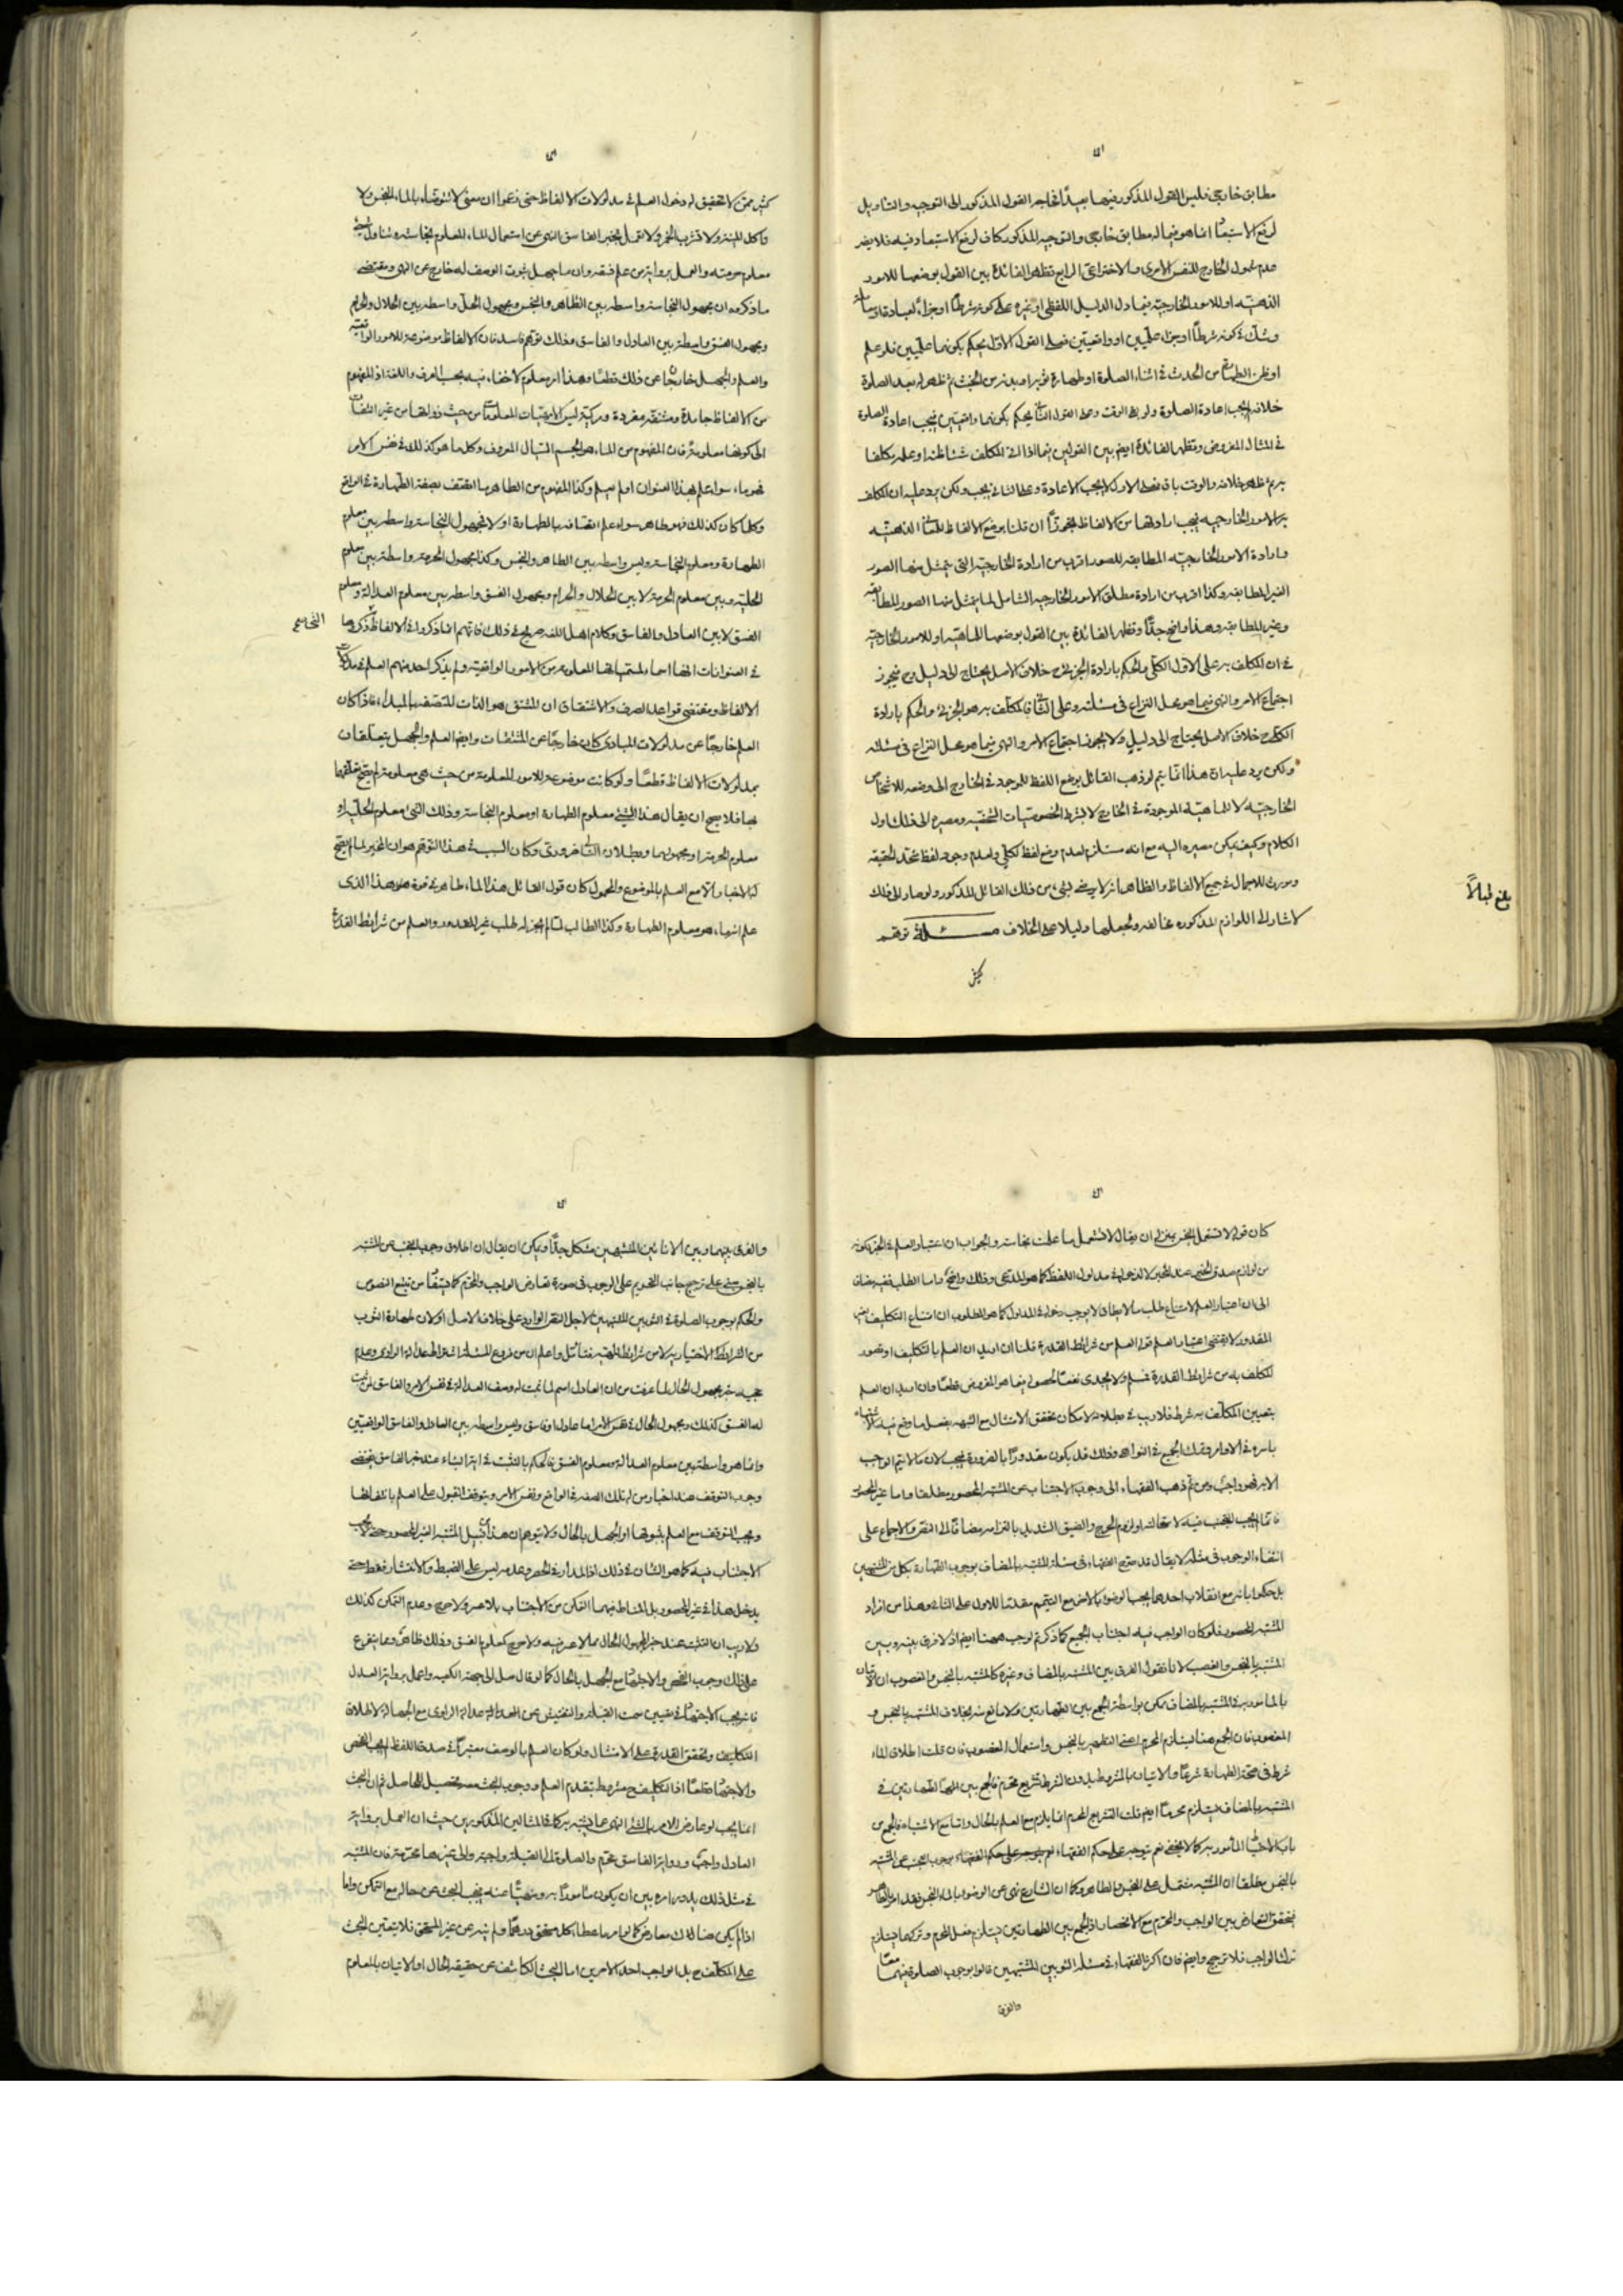 مطابق خارجى فليس القول المذكور فيهما بعيدًا فحاجة القول المذكور الى التوجيه والتاويل
لرفع الاستبعاد انما هو فيما له مطابق خارجى والتوجيه المذكور كاف لرفع الاستبعاد فيه فلا يضر
عدم شمول الخارج للنفس الامرى والاختراعى الرابع تظهر الفائدة بين القول بوضعها للامور
الذهنيه او للامور الخارجيه فيما دل الدليل اللفظى او غيره على كونه شرطًا او جزاء لعبادة
وشك فى كونه شرطًا او جزاء علميين او واقعيين فعلى القول الاول يحكم بكونهما علميين فلو علم
او ظن الطهارة من الحدث فى اثناء الصلوة او طهارة ثوبه او بدنه من الخبث ثم ظهر له بعد الصلوة
خلافه لا يجب اعادة الصلوة ولو بقى الوقت وعلى القول الثانى يحكم بكونهما واقعيين فيجب اعادة الصلوة
فى المثال المفروض وتظهر الفائدة ايضا بين القولين فيما اذا اتى المكلف شيئا ظنه او علمه مكلفا
به ثم ظهر خلافه والوقت باق فعلى الاول لا يجب الاعادة وعلى الثانى يجب ولكن يرد عليه ان المكلف
به الامور الخارجيه فيجب ارادتها من الالفاظ تجوزًا ان قلنا بوضع الالفاظ للمعانى الذهنيه
وارادة الامور الخارجيه المطابقه للصور اقرب من ارادة الخارجية التى يتمثل منها الصور
الغير المطابقه وكذا اقرب من ارادة مطلق الامور الخارجيه الشامل لما يتمثل منها الصور المطابقه
وغير المطابقه وهذا واضح جدًّا وتظهر الفائدة بين القول بوضعها للماهيه او للامور الخارجيه
فى ان المكلف به على الاول الكلى والحكم بارادة الجزئى ح خلاف الاصل يحتاج الى دليل و ح يجوز
اجتماع الامر والنهى فيما هو محل النزاع فى مسئلته وعلى الثانى فالمكلف به هو الجزئى والحكم بارادة
الكلى ح خلاف الاصل يحتاج الى دليل ولا يجوز اجتماع الامر والنهى فيما هو محل النزاع فى مسئلته
ولكن يرد عليه ان هذا انما يتم لو ذهب القائل بوضع اللفظ للموجود فى الخارج الى وضعه للاشخاص
الخارجيه لا للماهية الموجودة فى الخارج لا بشرط الخصوصيات الشخصيه ومصيره الى ذلك اول
الكلام وكيف يمكن مصيره اليه مع انه مستلزم لعدم وضع لفظ لكلى ولعدم وجود لفظ متحد الحقيقه
ومورث للاجمال فى جميع الالفاظ والظاهر انه لا يرضى بشئ من ذلك القائل المذكور ولو صار الى ذلك
لاشار الى اللوازم المذكوره مخالفوه وتجعلها دليلا على الخلاف مسئلة توهم
كثير
بلغ قبالًا
كثير ممن لا تحقيق له دخول العلم فى مدلولات الالفاظ حتى زعموا ان معنى لا تتوضأ بالماء النجس ولا
تاكل الميته ولا تشرب الخمر ولا تعمل بخبر الفاسق النهى عن استعمال الماء المعلوم نجاسته وتناول
معلوم حرمته والعمل برواية من علم فسقه وان ما جهل ثبوت الوصف له خارج عن النهى ومقتضى
ما ذكروه ان مجهول النجاسة واسطه بين الطاهر والنجس ومجهول الحل واسطه بين الحلال والحرام
ومجهول الفسق واسطة بين العادل والفاسق وذلك توهم فاسد فان الالفاظ موضوعة للامور الواقعيه
والعلم والجهل خارجان عن ذلك قطعًا وهذا امر معلوم لا خفاء فيه بحسب العرف واللغة اذ المفهوم
من الالفاظ جامدة ومشتقه مفردة ومركبة ليس الا المعلومات من حيث ذواتها من غير التفات
الى كونها معلومة فان المفهوم من الماء هو الجسم السيال المعروف وكل ما هو كذلك فى نفس الامر
فهو ماء سواء علم بهذا العنوان او لم يعلم وكذا المفهوم من الطاهر ما اتصف بصفة الطهارة فى الواقع
وكلما كان كذلك فهو طاهر سواء علم اتصافه بالطهارة او لا فمجهول النجاسة واسطه بين معلوم
الطهارة ومعلوم النجاسة وليس واسطه بين الطاهر والنجس وكذا مجهول الحرمة واسطة بين معلوم
الحليه وبين معلوم الحرمة لا بين الحلال والحرام ومجهول الفسق واسطه بين معلوم العدالة ومعلوم
الفسق لا بين العادل والفاسق وكلام اهل اللغه صريح فى ذلك فانهم انما ذكروا فى الالفاظ
فى العنوانات انها اسماء لمسمياتها المعلومة من الامور الواقعيه ولم يذكر احد منهم العلم فى
الالفاظ ومقتضى قواعد الصرف والاشتقاق ان المشتق هو الذات المتصف بالمبداء فاذا كان
العلم خارجًا عن مدلولات المبادى كان خارجًا عن المشتقات وايضا العلم والجهل يتعلقان
بمدلولات الالفاظ قطعًا ولو كانت موضوعة للامور المعلومة من حيث هى معلومة لم يصح تعلقهما
بها فلا يصح ان يقال هذا الشئ معلوم الطهارة او معلوم النجاسة وذلك الشئ معلوم الحلية او
معلوم الحرمة او مجهولهما وبطلان التالى ضرورى وكان السبب فى هذا التوهم هو ان المخبر لما لم يصح
له الاخبار الا مع العلم بالموضوع والمحمول كان قول القائل هذا الماء طاهر فى قوة هو هذا الذى
علم انه ماء هو معلوم الطهارة وكذا الطالب لما لم يجز له طلب غير المقدور والعلم من شرائط القدرة
كان قوله لا تستعمل النجس بمنزلة ان يقال لا تستعمل ما علمت نجاسته والجواب ان اعتبار العلم فى الخبر لكونه
من لوازم صدق الخبر عند المخبر لا لدخوله فى مدلول اللفظ كما هو المدعى وذلك واضح واما الطلب
الى ان اعتبار العلم لامتناع طلب ما لا يطاق لا يوجب دخوله فى المدلول كما هو المطلوب ان امتناع التكليف بغير
المقدور لا يقتضى اعتبار العلم قوله العلم من شرائط القدرة قلنا ان اريد ان العلم بالتكليف او تصور
المكلف به من شرائط القدرة فمسلم ولا يجدى نفعًا لحصولهما هو المفروض قطعًا وان اريد ان العلم
بتعيين المكلف به شرط فلا ريب فى بطلانه لامكان تحقق الامتثال مع الشبهه بفعل ما وقع فيه الاشتباه
باسره فى الاوامر وبترك الجميع فى النواهى وذلك قد يكون مقدورًا بالضرورة فيجب لان ما لا يتم الواجب
الا به فهو واجب ومن ثم ذهب الفقهاء الى وجوب الاجتناب عن المشتبه المحصور مطلقا واما غير المحصور
فانما لم يجب التجنب فيه لاستحالته او لزوم الحرج والضيق الشديد بالتزامه مضافًا الى النقل والاجماع على
انتفاء الوجوب فى مثله لا يقال قد صرح الفقهاء فى مسئلة المشتبه بالمضاف بوجوب الطهارة بكل من المشتبهين
بل حكموا بانه مع انقلاب احدهما يجب الوضوء بالاخر مع التيمم مقدمًا للاول على الثانى وهذا من افراد
المشتبه المحصور فلو كان الواجب فيه اجتناب الجميع كما ذكرتم لوجب ههنا ايضا اذ لا فرق بينه وبين
المشتبه بالنجس والغصب لانا نقول الفرق بين المشتبه بالمضاف وغيره كالمشتبه بالنجس والمغصوب ان الاتيان
بالمامور به فى المشتبه بالمضاف ممكن بواسطة الجمع بين الطهارتين ولا مانع منه بخلاف المشتبه بالنجس و
المغصوب فان الجمع هنا يستلزم المحرم اعنى التطهير بالنجس واستعمال المغصوب فان قلت اطلاق الماء
شرط فى صحة الطهارة شرعًا والاتيان بالمشروط بدون الشرط تشريع محرم فالجمع بين الطهارتين فى
المشتبه بالمضاف يستلزم محرمًا ايضا قلت التشريع المحرم انما يلزم مع العلم بالحال واما مع الاشتباه فالجمع من
باب الاحتياط المأمور به كما لا يخفى نعم يتوجه على حكم الفقهاء بوجوب التجنب عن المشتبه
بالنجس مطلقا ان المشتبه مشتمل على النجس والطاهر وكما ان الشارع نهى عن الوضوء بالماء النجس فقد امر بالطاهر
فتحقق التعارض بين الواجب والمحرم مع الانحصار اذ الجمع بين الطهارتين يستلزم فعل المحرم وتركهما يستلزم
ترك الواجب فلا ترجيح وايضا فان اكثر الفقهاء فى مسئلة الثوبين المشتبهين قالوا بوجوب الصلوة فيهما معًا
والفرق
والفرق بينهما وبين الانائين المشتبهين مشكل جدًّا ويمكن ان يقال ان اطلاق وجوب التجنب عن المشتبه
بالنجس مبنى على ترجيح جانب التحريم على الوجوب فى صورة تعارض الواجب والمحرم كما يستفاد من تتبع النصوص
والحكم بوجوب الصلوة فى الثوبين المشتبهين لاجل النص الوارد على خلاف الاصل او لان طهارة الثوب
من الشرائط الاختياريه لا من شرائط الماهيه فتأمل واعلم ان من فروع المسئلة اشتراط عدالة الراوى وعدم
حجية خبر مجهول الحال لما عرفت من ان العادل اسم لما ثبت له وصف العدالة فى نفس الامر والفاسق لمن ثبت
له الفسق كذلك ومجهول الحال فى نفس الامر اما عادل او فاسق وليس واسطه بين العادل والفاسق الواقعيين
وانما هو واسطة بين معلوم العدالة ومعلوم الفسق فالحكم بالتثبت فى اية النباء عند خبر الفاسق يقتضى
وجوب التوقف عند اخبار من له تلك الصفه فى الواقع ونفس الامر ويتوقف القبول على العلم بانتفائها
ويجب التوقف مع العلم بثبوتها او الجهل بالحال ولا يتوهم ان هذا من قبيل المشتبه الغير المحصور حتى لا يجب
الاجتناب فيه كما هو الشان فى ذلك اذ المدار فى الحصر وعدمه ليس على الضبط والانتشار فقط حتى
يدخل هذا فى غير المحصور بل المناط فيهما التمكن من الاجتناب بلا عسر ولا حرج وعدم التمكن كذلك
ولا ريب ان التثبت عند خبر المجهول الحال مما لا عسر فيه ولا حرج كمعلوم الفسق وذلك ظاهر ومما يتفرع
على ذلك وجوب الفحص والاجتهاد مع الجهل بالحال كما لو قال صل الى جهة الكعبه واعمل برواية العدل
فانه يجب الاجتهاد فى تعيين سمت القبلة والتفتيش عن العدالة الراوى مع الجهالة لاطلاق
التكليف وتحقق القدرة على الامتثال ولو كان العلم بالوصف معتبرًا فى صدق اللفظ لم يجب الفحص
والاجتهاد قطعًا اذ التكليف ح مشروط بتقدم العلم ووجوب البحث تحصيل الحاصل ثم ان البحث
انما يجب لو عارض الامر بالشئ النهى عما يشتبه به كما فى المثالين المذكورين حيث ان العمل برواية
العادل واجب ورواية الفاسق محرم والصلوة الى القبلة واجبة والى غيرها محرمة فان المشتبه
فى مثل ذلك يدور امره بين ان يكون مأمورًا به ومنهيًّا عنه فيجب البحث عن حاله مع التمكن واما
اذا لم يكن هنالك معارض كما لو امر باعطاء كل مستحق درهمًا ولم ينه عن غير المستحق فلا يتعين البحث
على المكلف ح بل الواجب احد الامرين اما البحث الكاشف عن حقيقه الحال او الاتيان بالمعلوم